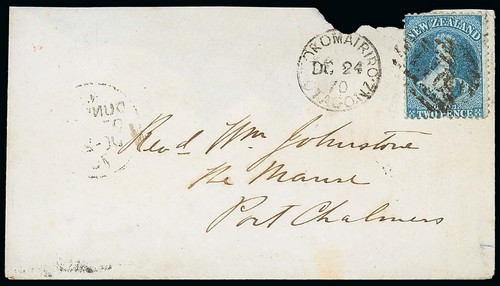 NEW ZEALAND
TWO PENCE
TOKOMAIRIRO N.Z
DC 24
70
OTAGO
Revd Wm Johnstone
the Manse
Port Chalmers
DUN
DC